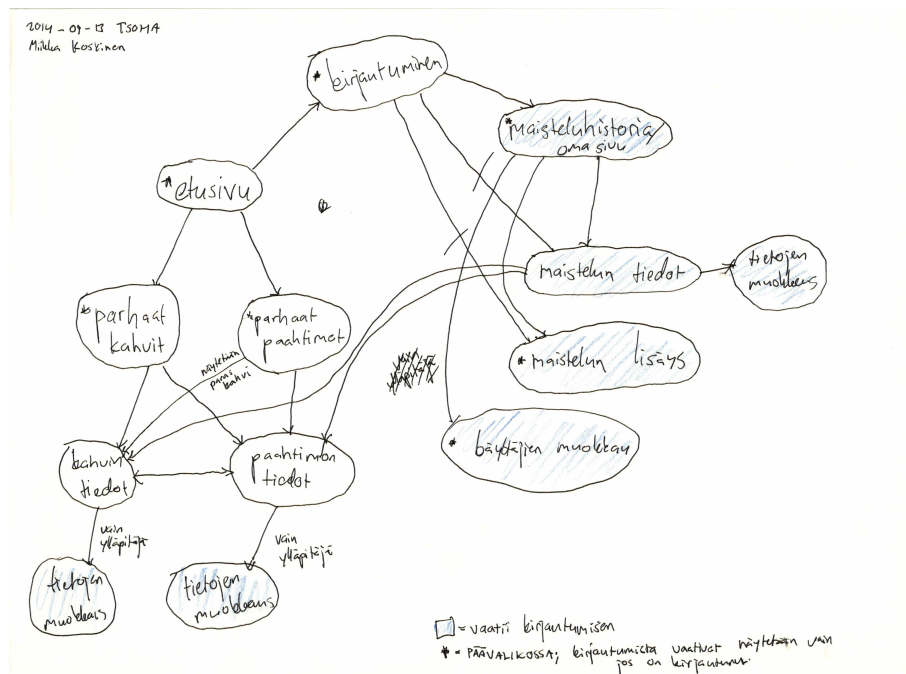 2014-09-13 TSOHA
Miikka Koskinen
* kirjautuminen
* maisteluhistoria,
oma sivu
* etusivu
maistelun tiedot
tietojen
muokkaus
* parhaat
kahvit
* parhaat
paahtimot
näytetään
paras
kahvi
* maistelun lisäys
* käyttäjien muokkau
kahvin
tiedot
paahtimon
tiedot
vain
ylläpitäjä
vain
ylläpitäjä
tietojen
muokkaus
tietojen
muokkaus
= vaatii kirjautumisen
* = PÄÄVALIKOSSA; kirjautumista vaativat näytetään vain
jos on kirjautunut.